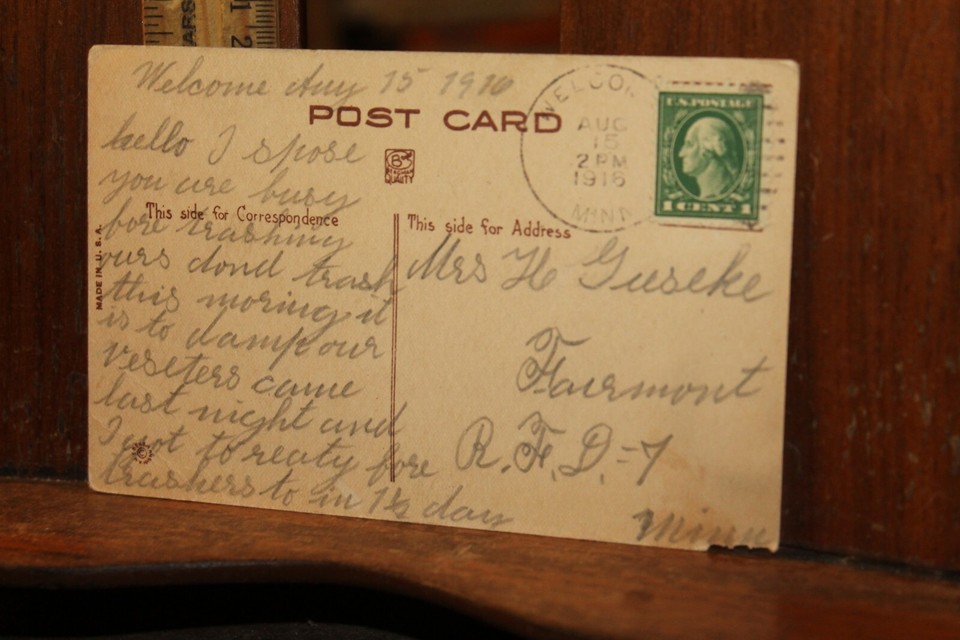 Welcome Aug 15 1916
POST CARD
WELCOME
AUG
15
2 PM
1916
MINN
U.S. POSTAGE
1 CENT 1
QUALITY
hello I spose
you are busy
This side for Correspondence
fore trashing
ours dond trash
this moring it
is to damp our
veseters came
last night and
I got to reaty fore
trashers to in 1½ day
MADE IN U.S.A.
This side for Address
Mrs H Guseke
Fairmont
R.F.D.=7
Minn